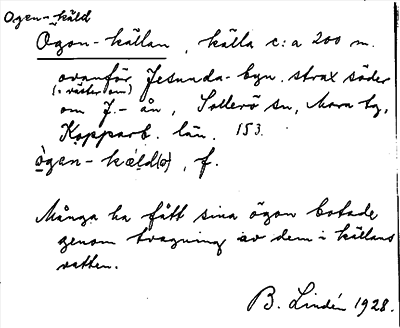 Ogen-käld
Ögon-källan, källa c:a 200 m.
ovanför Jesunda-byn strax söder
(: väster om)
om J.-ån, Sollerö sn, Mora tg,
Kopparb. län. 153.
ògen-kæld(ə), f.
Många ha fått sina ögon botade
genom tvagning av dem i källans
vatten.
B. Lindén 1928.